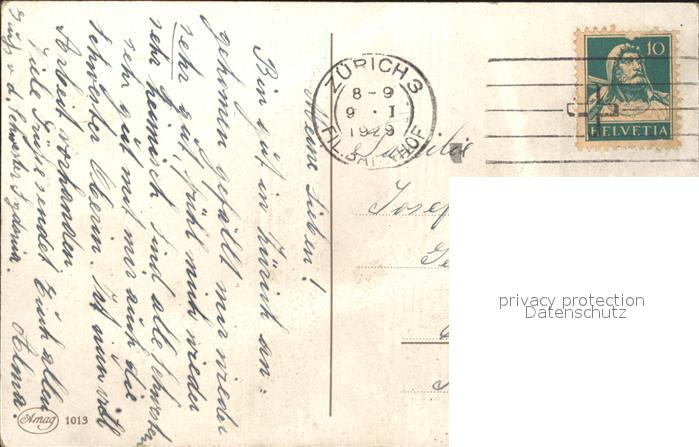 Meine Lieben!
Bin gut in Zürich an-
gekommen gefällt mir wieder
sehr gut, fühl mich wieder
sehr heimisch sind alle Schwestern
sehr gut mit mir auch die
Schwester Oberin. Ist nun viel
Arbeit vorhanden
Viele Grüße sendet Euch allen
Gruß v. d. Schwester
Amag 1013
ZÜRICH 3
8-9
9. I
1929
FIL. BAHNHOF
10
HELVETIA
Familie
Josef
privacy protection
Datenschutz